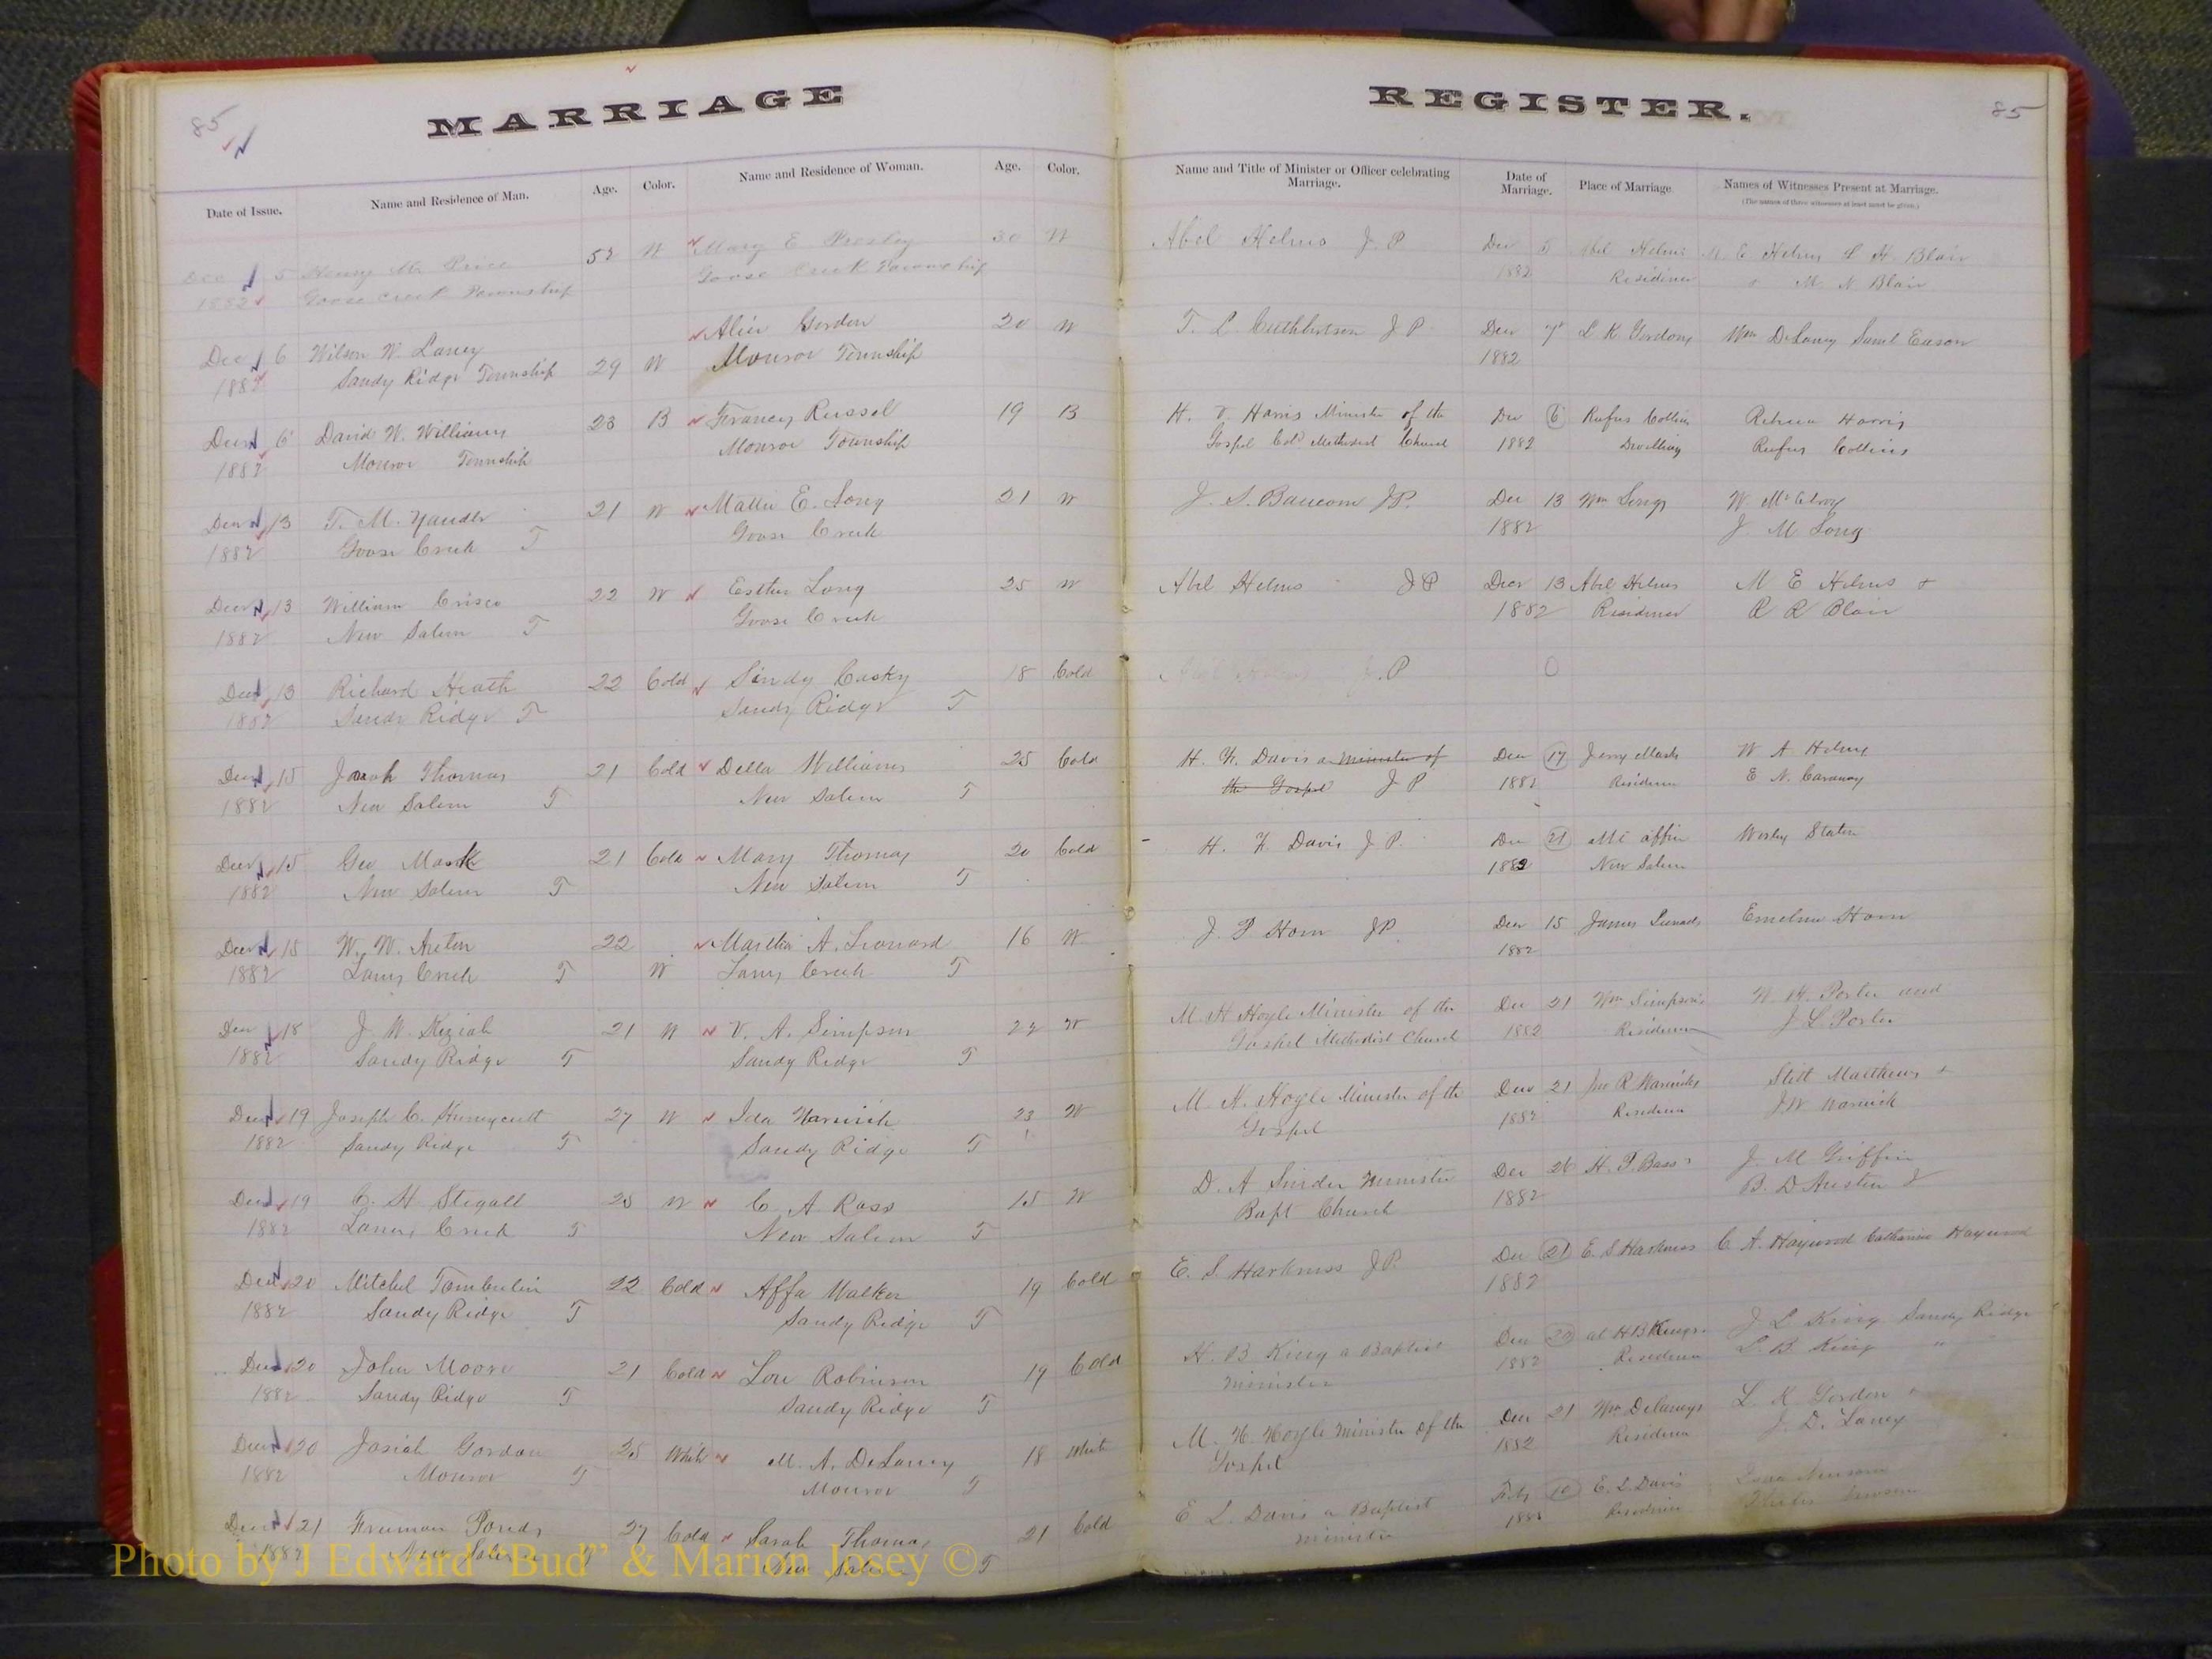 85
MARRIAGE
REGISTER.
85
Date of Issue.
Name and Residence of Man.
Age.
Color.
Name and Residence of Woman.
Age.
Color.
Name and Title of Minister or Officer celebrating Marriage.
Date of Marriage.
Place of Marriage
Names of Witnesses Present at Marriage.
(The names of three witnesses at least must be given.)
Dec 5 Henry M. Price 52 W Mary E 30 W Abel Helms J. P Dec 5 Abel Helms M E Helms & H Blair
1882 Goose Creek Township Goose Creek Township 1882 Residence M N Blair
Dec 6 Wilson W. Laney 29 W Alice Gordon 20 W T. L. Cuthbertson J P. Dec 7 L K Gordons Wm DeLaney Saml Eason
1882 Sandy Ridge Township Monroe Township 1882
Decr 6 David W. Williams 23 B Francis Russel 19 B H. V. Harris Minister of the Dec 6 Rufus Collins Harris
1882 Monroe Township Monroe Township Gospel Cold Methodist Church 1882 Dwelling Rufus Collins
Decr 13 T. M. Yandle 21 W Mattie E. Long 21 W J. S. Baucom JP. Dec 13 Wm Longs W McElroy
1882 Goose Creek T Goose Creek 1882 J M Long
Decr 13 William Crisco 22 W Esther Long 25 W Abel Helms J P Decr 13 Abel Helms M E Helms &
1882 New Salem T Goose Creek 1882 Residence R R Blair
Decr 13 Richard Heath 22 Cold Sindy Casky 18 Cold J. P
1882 Sandy Ridge T Sandy Ridge T
Decr 15 Thomas 21 Cold Della Williams 25 Cold H. W. Davis a minister of Dec 17 Jerry Masks W A Helms
1882 New Salem T New Salem T the Gospel J P 1882 Residence E N. Caraway
Decr 15 Geo Mask 21 Cold Mary Thomas 20 Cold H. W. Davis J P. Dec 21 at office Wesley Staten
1882 New Salem T New Salem T 1882 New Salem
Decr 15 W. W. Austin 22 Martha A. Leonard 16 W J. P Horn JP. Decr 15 James Leonards Emeline Horn
1882 Lanes Creek T W Lanes Creek T 1882
Dec 18 J. W. Keziah 21 W V. A. Simpson 22 W M. H Hoyle Minister of the Dec 21 Wm Simpson's W. H. Porter and
1882 Sandy Ridge T Sandy Ridge T Gospel Methodist Church 1882 Residence J L Porter
Decr 19 Joseph C. Hunneycutt 27 W Ida Warwick 23 W M. H. Hoyle Minister of the Decr 21 Jno R Warwicks Stitt Matthews &
1882 Sandy Ridge T Sandy Ridge T Gospel 1882 Residence J W Warwick
Dec 19 C. H Stegall 25 W C A Ross 15 W D. A Snider Minister Dec 26 H. P. Bass J. M Griffin
1882 Lanes Creek T New Salem T Bapt Church 1882 B. D Austin J
Decr 20 Mitchel Tomberlin 22 Cold Affa Walker 19 Cold E. S. Harkness JP. Dec 21 E. S Harkness C. A. Haywood Catharine Haywood
1882 Sandy Ridge T Sandy Ridge T 1882
Decr 20 John Moore 21 Cold Lou Robinson 19 Cold H. B King a Baptist Dec at H B Kings J L King Sandy Ridge
1882 Sandy Ridge T Sandy Ridge T Minister 1882 Residence L. B. King "
Decr 20 Josiah Gordon 25 White M. A. DeLaney 18 White M. H. Hoyle Minister of the Decr 21 Wm Delaneys L. K. Gordon
1882 Monroe T Monroe T Gospel 1882 Residence J. D. Laney
Decr 21 Freeman Ponds 27 Cold Sarah Thomas 21 Cold E L Davis a Baptist Feby 10 E. L. Davis
1882 New Salem T New Salem T minister Residence
Photo by J Edward “Bud” & Marion Josey ©